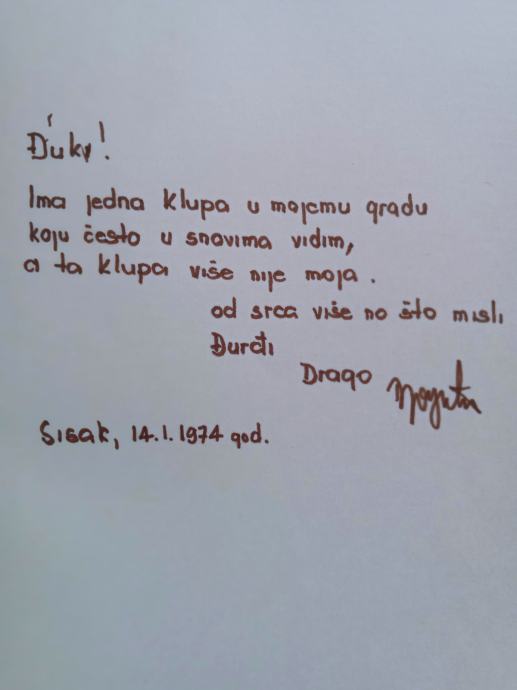 Đuky!
Ima jedna klupa u mojemu gradu
koju često u snovima vidim,
a ta klupa više nije moja.
od srca više no što misli
Đurđi
Drago
Sisak, 14.1.1974 god.